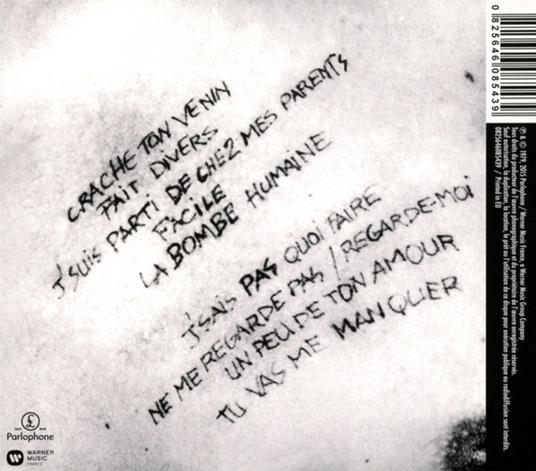 CRACHE TON VENIN
FAIT DIVERS
J'SUIS PARTI DE CHEZ MES PARENTS
FACILE
LA BOMBE HUMAINE
J'SAIS PAS QUOI FAIRE
NE ME REGARDE PAS / REGARDE-MOI
UN PEU DE TON AMOUR
TU VAS ME MANQUER
Parlophone
WARNER
MUSIC
FRANCE
0 825646 085439
℗ & © 1979, 2015 Parlophone / Warner Music France, a Warner Music Group Company
Tous droits du producteur de l'œuvre phonographique et du propriétaire de l'œuvre enregistrée réservés.
Sauf autorisation, la duplication, la location, le prêt ou l'utilisation de ce disque pour exécution publique ou radiodiffusion sont interdits.
0825646085439 / Printed in EU